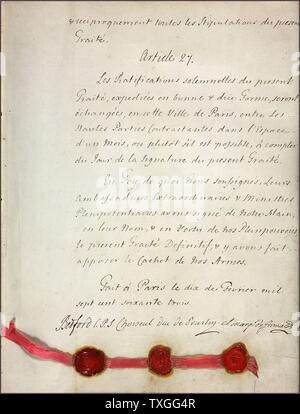 & réciproquement toutes les Stipulations du présent
Traité.
Article 27.
Les Ratifications solemnelles du présent
Traité, expediées en bonne & düe Forme, seront
échangées, en cette Ville de Paris, entre les
Hautes Parties Contractantes dans l'Espace
d'un Mois, ou plutôt s'il est possible, à compter
du Jour de la Signature du présent Traité.
En Foy de quoi Nous soussignés, Leurs
Ambassadeurs Extraordinaires & Ministres
Plenipotentiaires avons signé de Notre Main,
en leur Nom, & en Vertu de nos Pleinpouvoirs,
le présent Traité Définitif, & y avons fait
apposer le Cachet de nos Armes.
Fait à Paris le dix de Fevrier mil
sept cent soixante trois.
Bedford C.P.S. Choiseul duc de Praslin el Marq. de Grimaldi
alamy
Image ID: TXGG4R
www.alamy.com